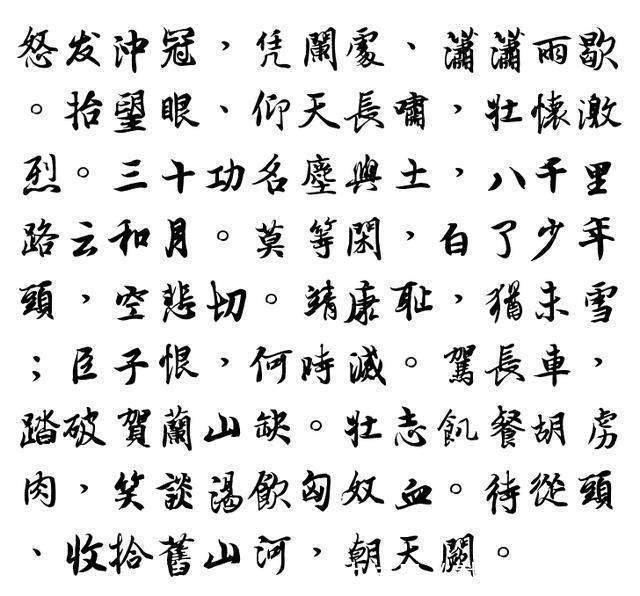 怒发沖冠，凭闌處、瀟瀟雨歇
。抬望眼、仰天長嘯，壯懷激
烈。三十功名塵與土，八千里
路云和月。莫等閑，白了少年
頭，空悲切。靖康耻，猶未雪
；臣子恨，何時滅。駕長車，
踏破賀蘭山缺。壯志飢餐胡虜
肉，笑談渴飲匈奴血。待從頭
、收拾舊山河，朝天闕。